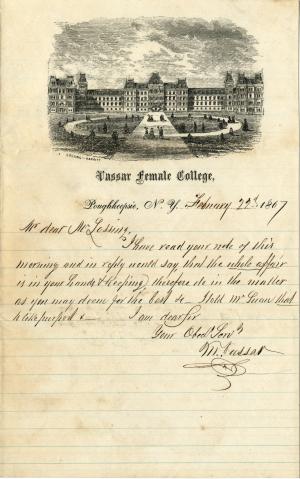 Vassar Female College,
Poughkeepsie, N. Y. February 22d 1867
My dear Mr Lossing,
I have read your note of this
morning and in reply would say that the whole affair
is in your hands & keeping, therefore do in the matter
as you may deem for the best &c I told Mr Swan that
I am dear Sir
Your Obed Servt
M. Vassar